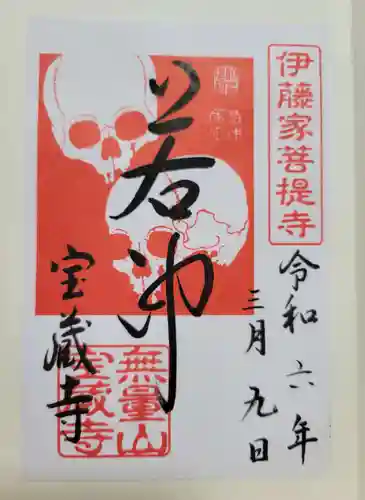 伊藤家菩提寺
令和六年
三月九日
若冲
宝蔵寺
無量山
宝蔵寺